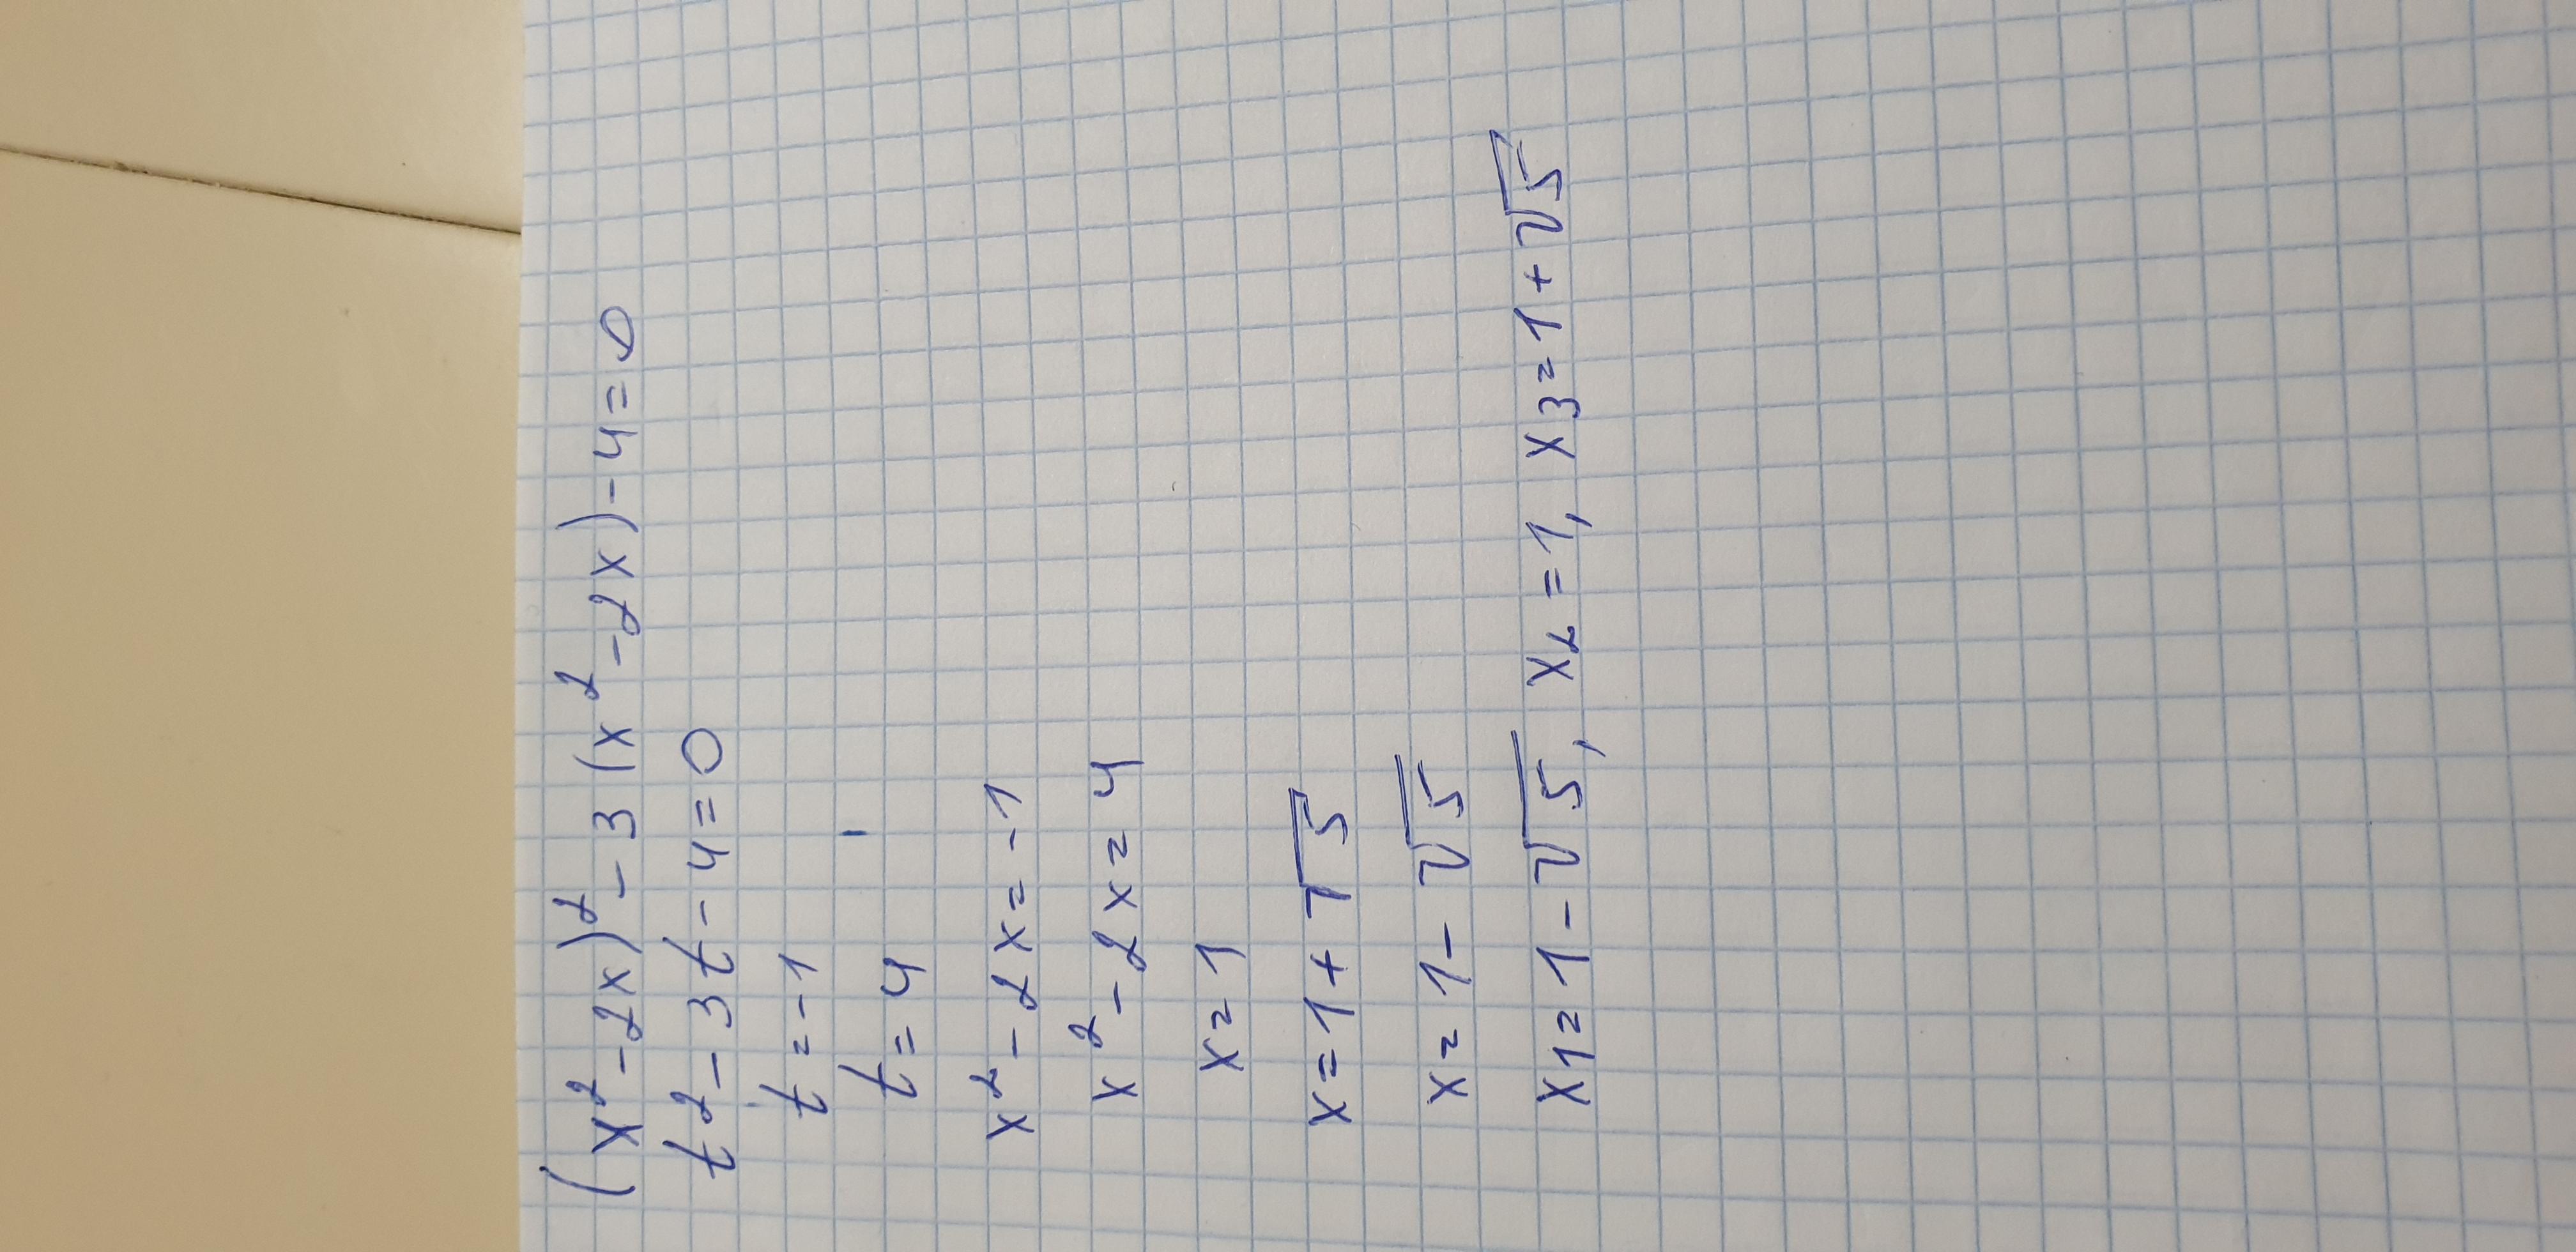 (x²-2x)²-3(x²-2x)-4=0
t²-3t-4=0
t=-1
t=4
x²-2x=-1
x²-2x=4
x=1
x=1+√5
x=1-√5
x1=1-√5, x2=1, x3=1+√5